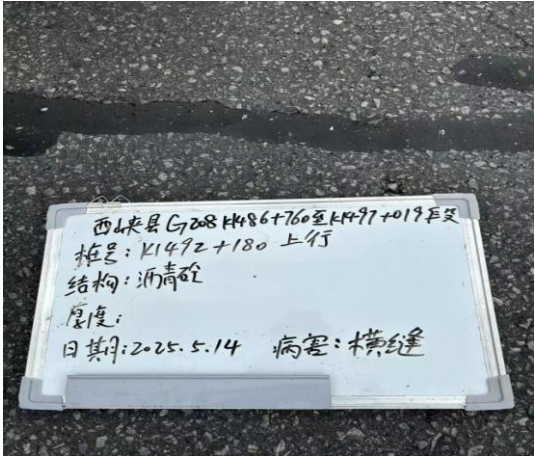 西峡县G208K1486+760至K1497+019段
桩号:K1492+180 上行
结构:沥青砼
厚度:
日期:2025.5.14 病害:横缝